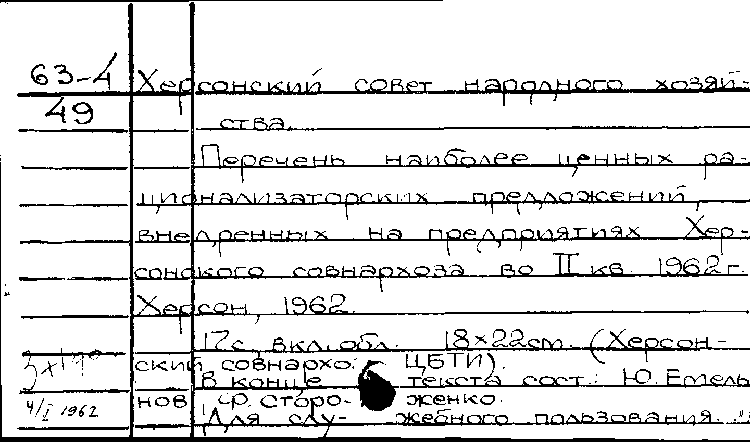 63-4
49
Херсонский совет народного хозяй-
ства.
Перечень наиболее ценных ра-
ционализаторских предложений,
внедренных на предприятиях Хер-
сонского совнархоза во II кв. 1962 г.
Херсон, 1962.
17 с. вкл. обл. 18×22 см. (Херсон-
ский совнархо. ЦБТИ).
В конце текста сост.: Ю. Емель
нов, Ф. Сторо- женко.
Для слу- жебного пользования.
4/I 1962